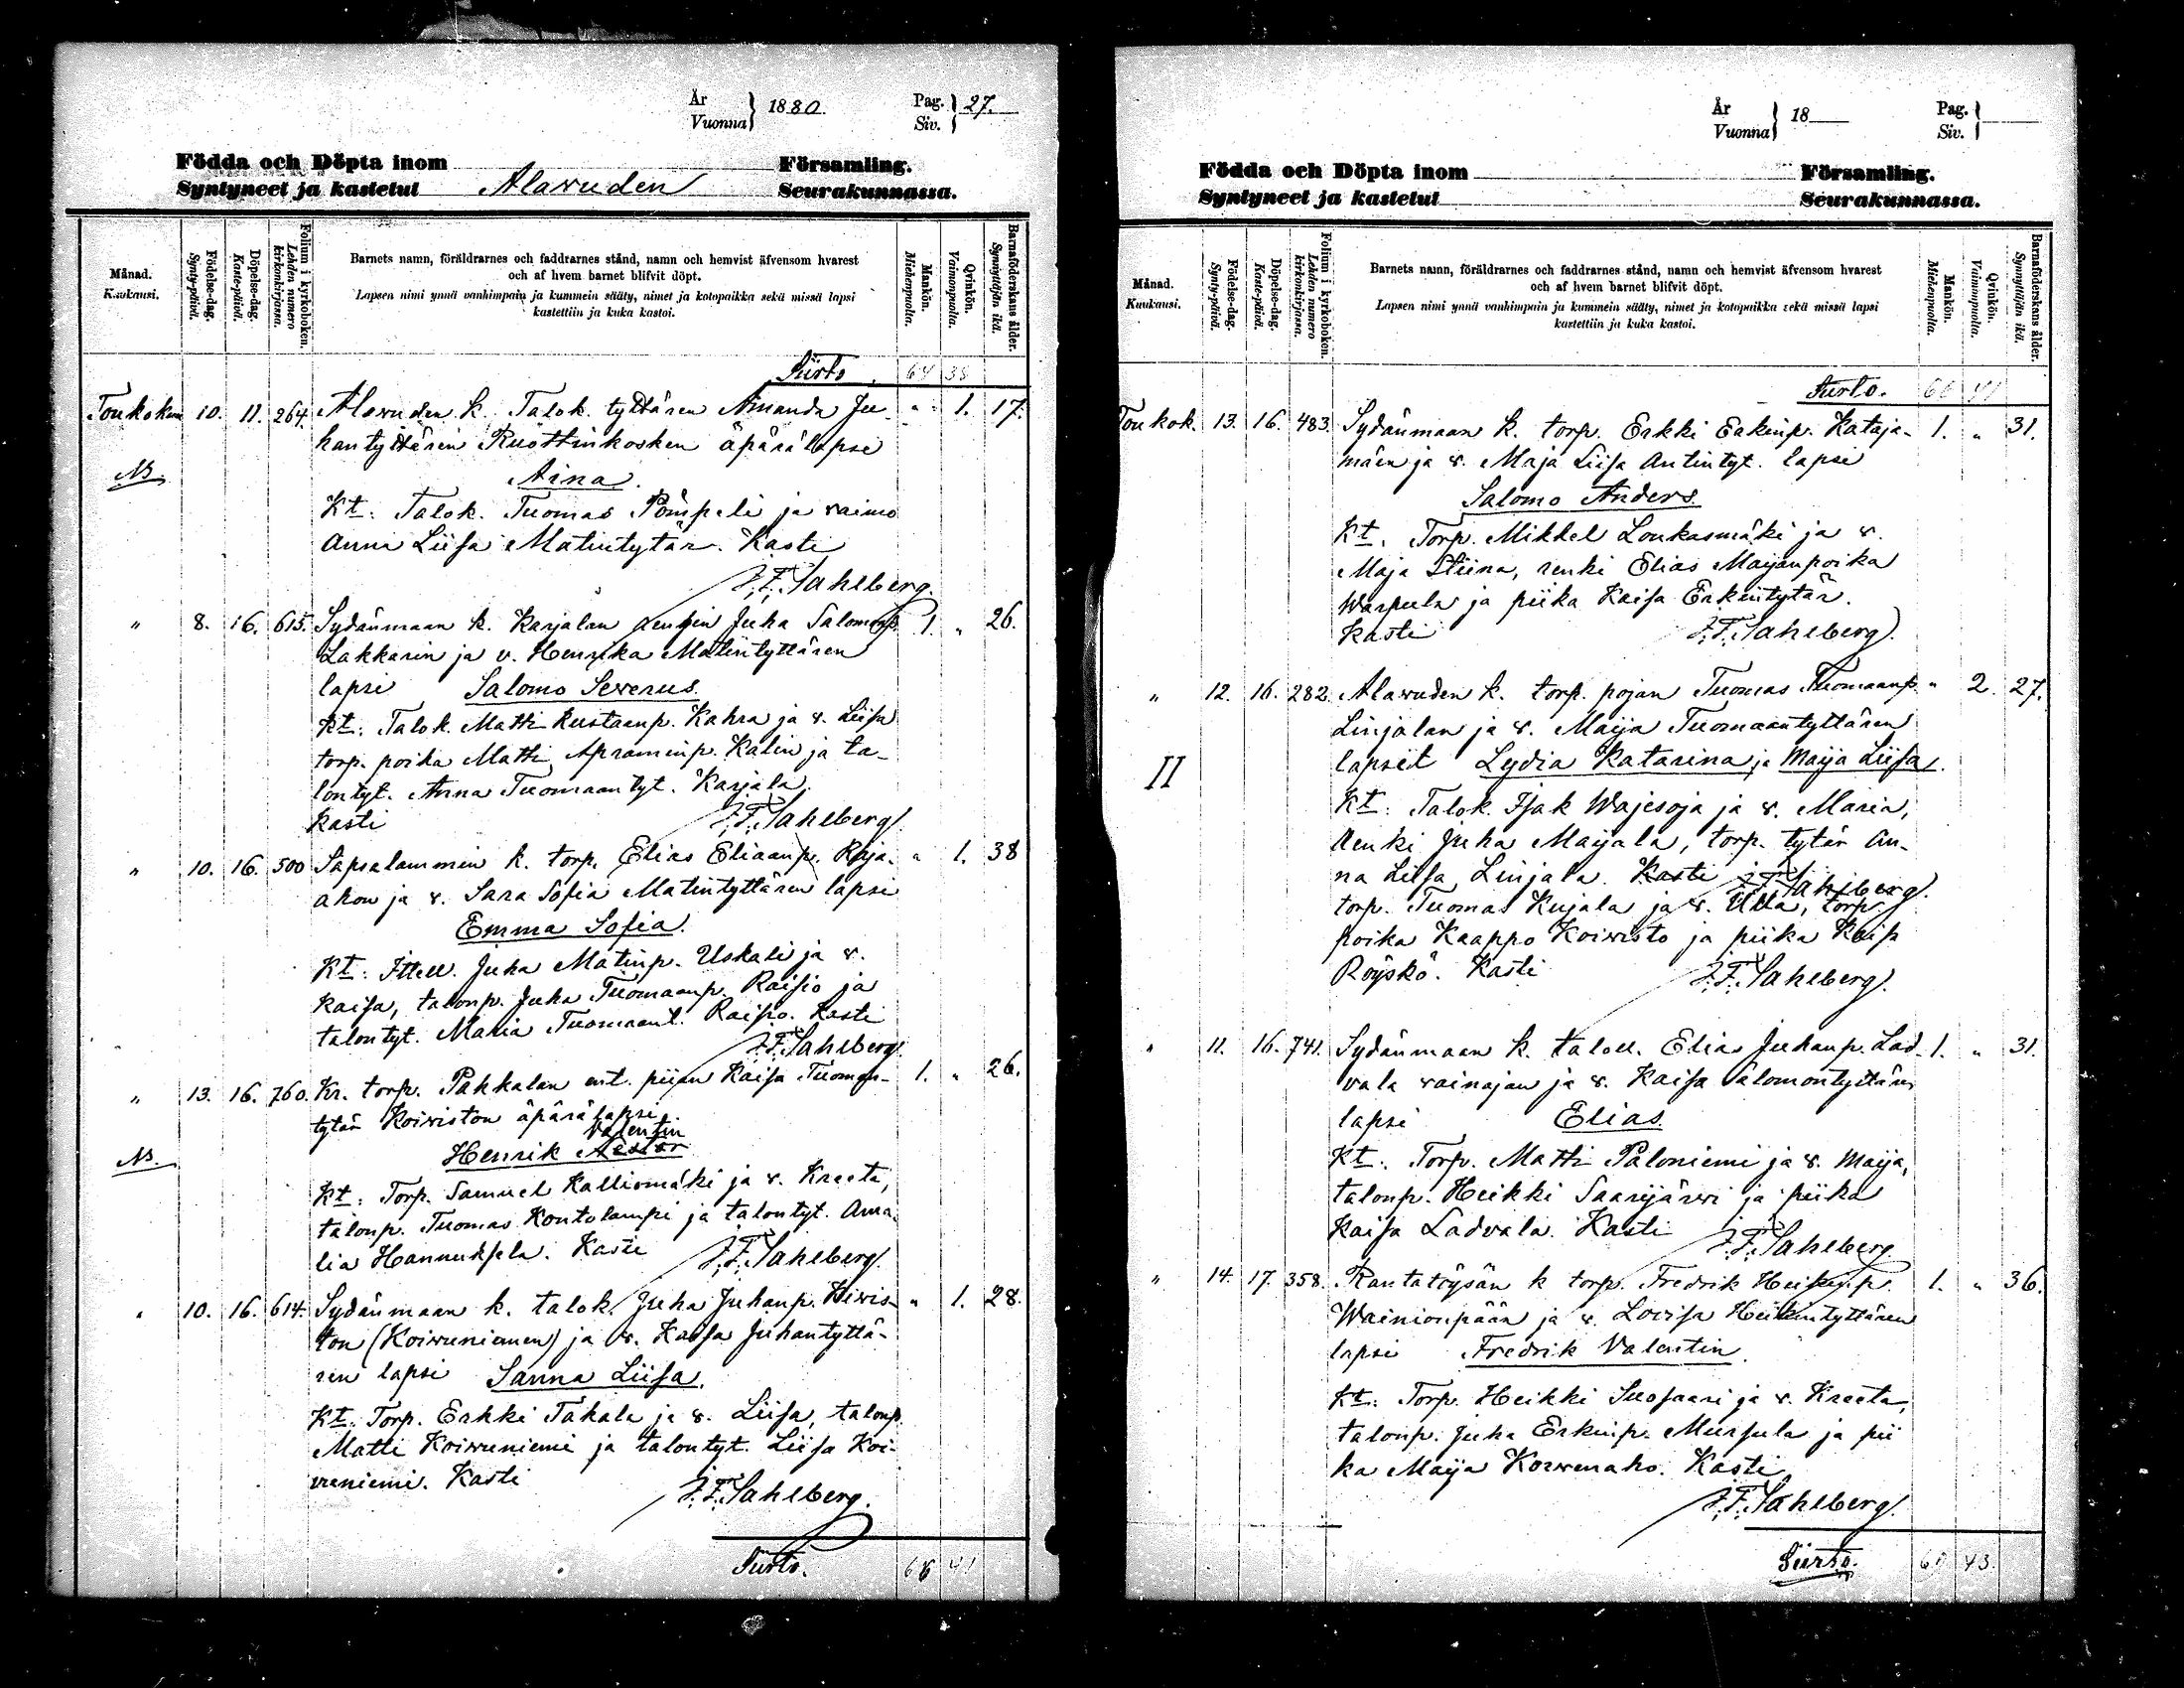 År
Vuonna } 1880.
Pag.
Siv. } 27.
Födda och Döpta inom Församling.
Syntyneet ja kastetut Alavuden Seurakunnassa.
Månad.
Kuukausi.
Födelse-dag.
Synty-päivä.
Döpelse-dag.
Kaste-päivä.
Folium i kyrkoboken.
Lehden numero
kirkonkirjassa.
Barnets namn, föräldrarnes och faddrarnes stånd, namn och hemvist äfvensom hvarest
och af hvem barnet blifvit döpt.
Lapsen nimi ynnä vanhimpain ja kummein sääty, nimet ja kotopaikka sekä missä lapsi
kastettiin ja kuka kastoi.
Mankön.
Miehenpuolta.
Qvinkön.
Vaimonpuolta.
Barnaföderskans ålder.
Synnyttäjän ikä.
Siirto. 64 38
Toukokuu 10. 11. 264. Alavuden k. Talok. tyttären Amanda Ju- " 1. 17.
hantyttären Ruottinkosken äpärälapse
NB Aina.
Kt: Talok. Tuomas Pömpeli ja vaimo
Anna Liisa Matintytär. Kasti
J.F. Sahlberg.
" 8. 16. 615. Sydänmaan k. Karjalan rengin Juha Salomonp. 1. " 26.
Lakkarin ja v. Henrika Matintyttären
lapsi Salomo Severus.
Kt: Talok. Matti Kustaanp. Kahra ja v. Liisa
torp. poika Matti Apraminp. Kalin ja ta-
lontyt. Anna Tuomaantyt. Karjala.
Kasti J.F. Sahlberg.
" 10. 16. 500 Sapsalammin k. torp. Elias Eliaanp. Raja- " 1. 38
ahon ja v. Sara Sofia Matintyttären lapsi
Emma Sofia.
Kt: Ittell. Juha Matinp. Uskali ja v.
Kaisa, talonp. Juha Tuomaanp. Raisio ja
talontyt. Maria Tuomaant. Raisio. Kasti
J.F. Sahlberg.
" 13. 16. 760. Kr. torp. Pakkalan ent. piian Kaisa Tuoman- 1. " 26.
tytär Koiviston äpärälapsi
Valentin
NB. Henrik Nestor
Kt: Torp. Samuel Kalliomäki ja v. Kreeta,
talonp. Tuomas Kontolampi ja talontyt. Ama-
lia Hannuksela. Kasti J.F. Sahlberg.
" 10. 16. 614. Sydänmaan k. talok. Juha Juhanp. Kivis- " 1. 28.
ton (Koivuniemen) ja v. Kaisa Juhantyttä-
ren lapsi Sanna Liisa.
Kt: Torp. Erkki Takala ja v. Liisa, talonp.
Matti Koivuniemi ja talontyt. Liisa Koi-
vuniemi. Kasti J.F. Sahlberg.
Siirto. 66 41
År
Vuonna } 18
Pag.
Siv. }
Födda och Döpta inom Församling.
Syntyneet ja kastetut Seurakunnassa.
Månad.
Kuukausi.
Födelse-dag.
Synty-päivä.
Döpelse-dag.
Kaste-päivä.
Folium i kyrkoboken.
Lehden numero
kirkonkirjassa.
Barnets namn, föräldrarnes och faddrarnes stånd, namn och hemvist äfvensom hvarest
och af hvem barnet blifvit döpt.
Lapsen nimi ynnä vanhimpain ja kummein sääty, nimet ja kotopaikka sekä missä lapsi
kastettiin ja kuka kastoi.
Mankön.
Miehenpuolta.
Qvinkön.
Vaimonpuolta.
Barnaföderskans ålder.
Synnyttäjän ikä.
Siirto. 66 41
Toukok. 13. 16. 483. Sydänmaan k. torp. Erkki Erkinp. Kataja- 1. " 31.
mäen ja v. Maja Liisa Antintyt. lapsi
Salomo Anders.
Kt: Torp. Mikkel Loukasmäki ja v.
Maja Stiina, renki Elias Maijanpoika
Warpula ja piika Kaisa Erkintytär.
Kasti J.F. Sahlberg.
" 12. 16. 282. Alavuden k. torp. pojan Tuomas Tuomaanp. " 2. 27.
Linjalan ja v. Maija Tuomaantyttären
II lapset Lydia Katarina ja Maija Liisa.
Kt: Talok. Isak Wajesoja ja v. Maria,
renki Juha Maijala, torp. tytär An-
na Liisa Linjala. Kasti J.F. Sahlberg.
torp. Tuomas Kujala ja v. Ulla, torp.
poika Kaappo Koivisto ja piika Kaisa
Röyskö. Kasti J.F. Sahlberg.
" 11. 16. 741. Sydänmaan k. talon. Elias Juhanp. Lad- 1. " 31.
vala vainajan ja v. Kaisa Salomontyttären
lapsi Elias.
Kt: Torp. Matti Paloniemi ja v. Maija,
talonp. Heikki Saarijärvi ja piika
Kaisa Ladvala. Kasti J.F. Sahlberg.
" 14. 17. 358. Rantatöysän k torp. Fredrik Heikinp. 1. " 36.
Wainionpään ja v. Lovisa Heikintyttären
lapsi Fredrik Valentin.
Kt: Torp. Heikki Suosaari ja v. Kreeta,
talonp. Juha Erkinp. Mursula ja pii
ka Maija Korvenaho. Kasti
J.F. Sahlberg.
Siirto. 43.